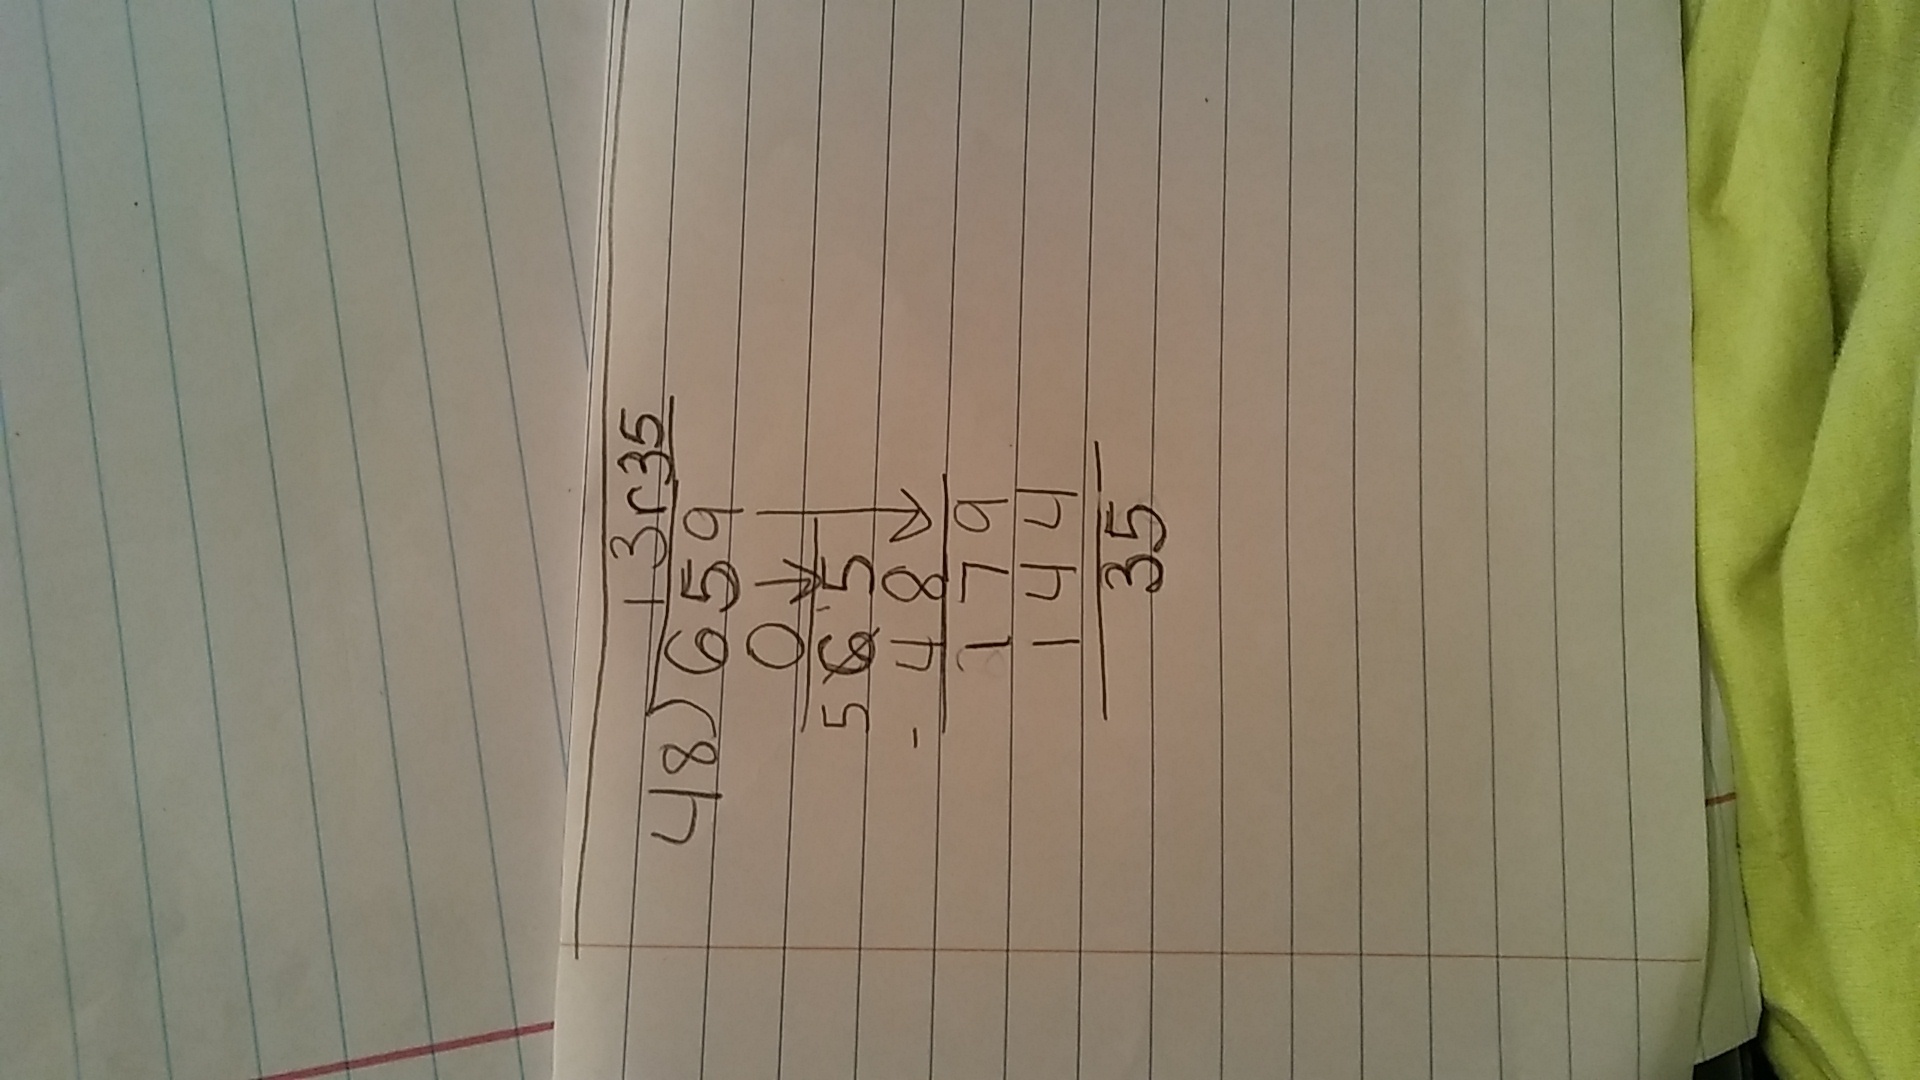 13r35
48)659
0
5 6 15
- 48
179
144
35